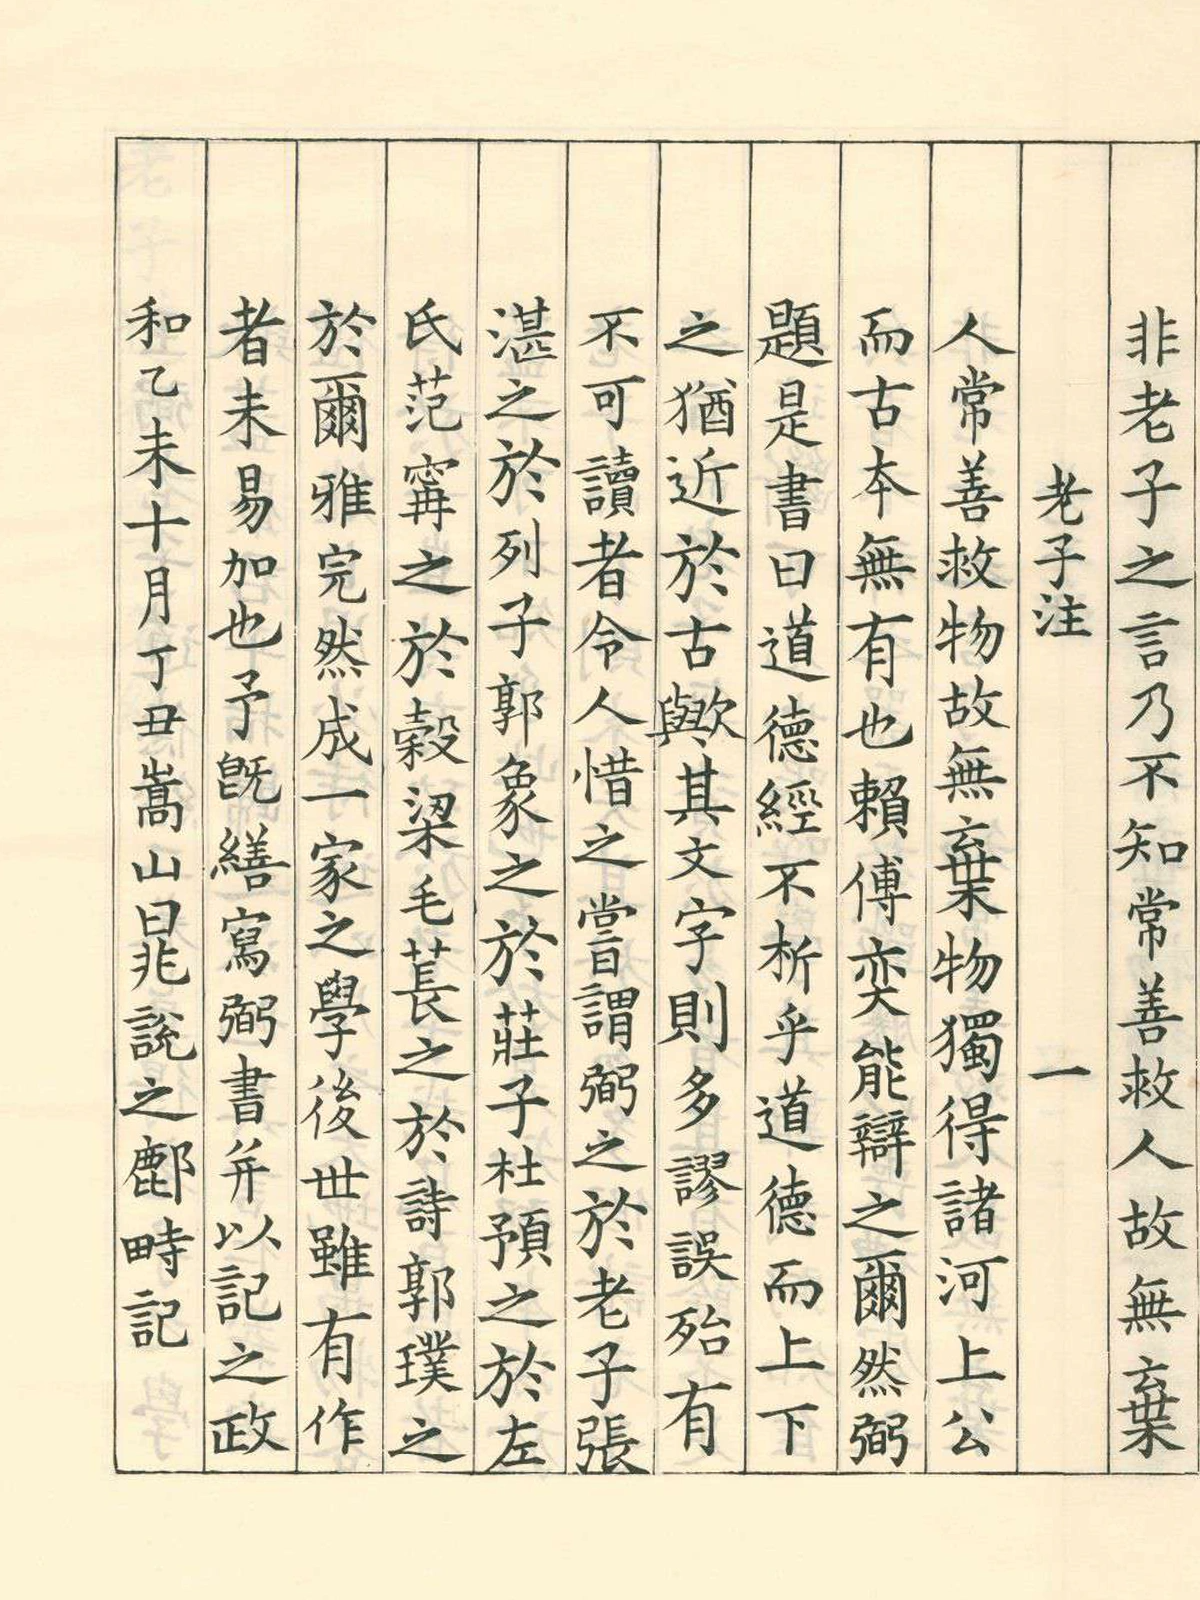 非老子之言乃不知常善救人故無棄
老子注 一
人常善救物故無棄物獨得諸河上公
而古本無有也賴傅奕能辯之爾然弼
題是書曰道德經不析乎道德而上下
之猶近於古歟其文字則多謬誤殆有
不可讀者令人惜之嘗謂弼之於老子張
湛之於列子郭象之於莊子杜預之於左
氏范甯之於穀梁毛萇之於詩郭璞之
於爾雅完然成一家之學後世雖有作
者未易加也予旣繕寫弼書并以記之政
和乙未十月丁丑嵩山晁說之鄜畤記